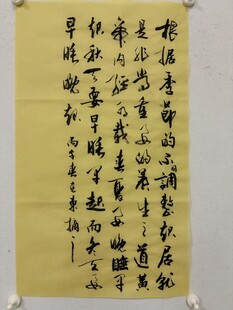 根据季节的不同调整起居就
是非常重要的养生之道黄
帝内经有载春夏要晚睡早
起秋天要早睡早起而冬天要
早睡晚起 丙午春